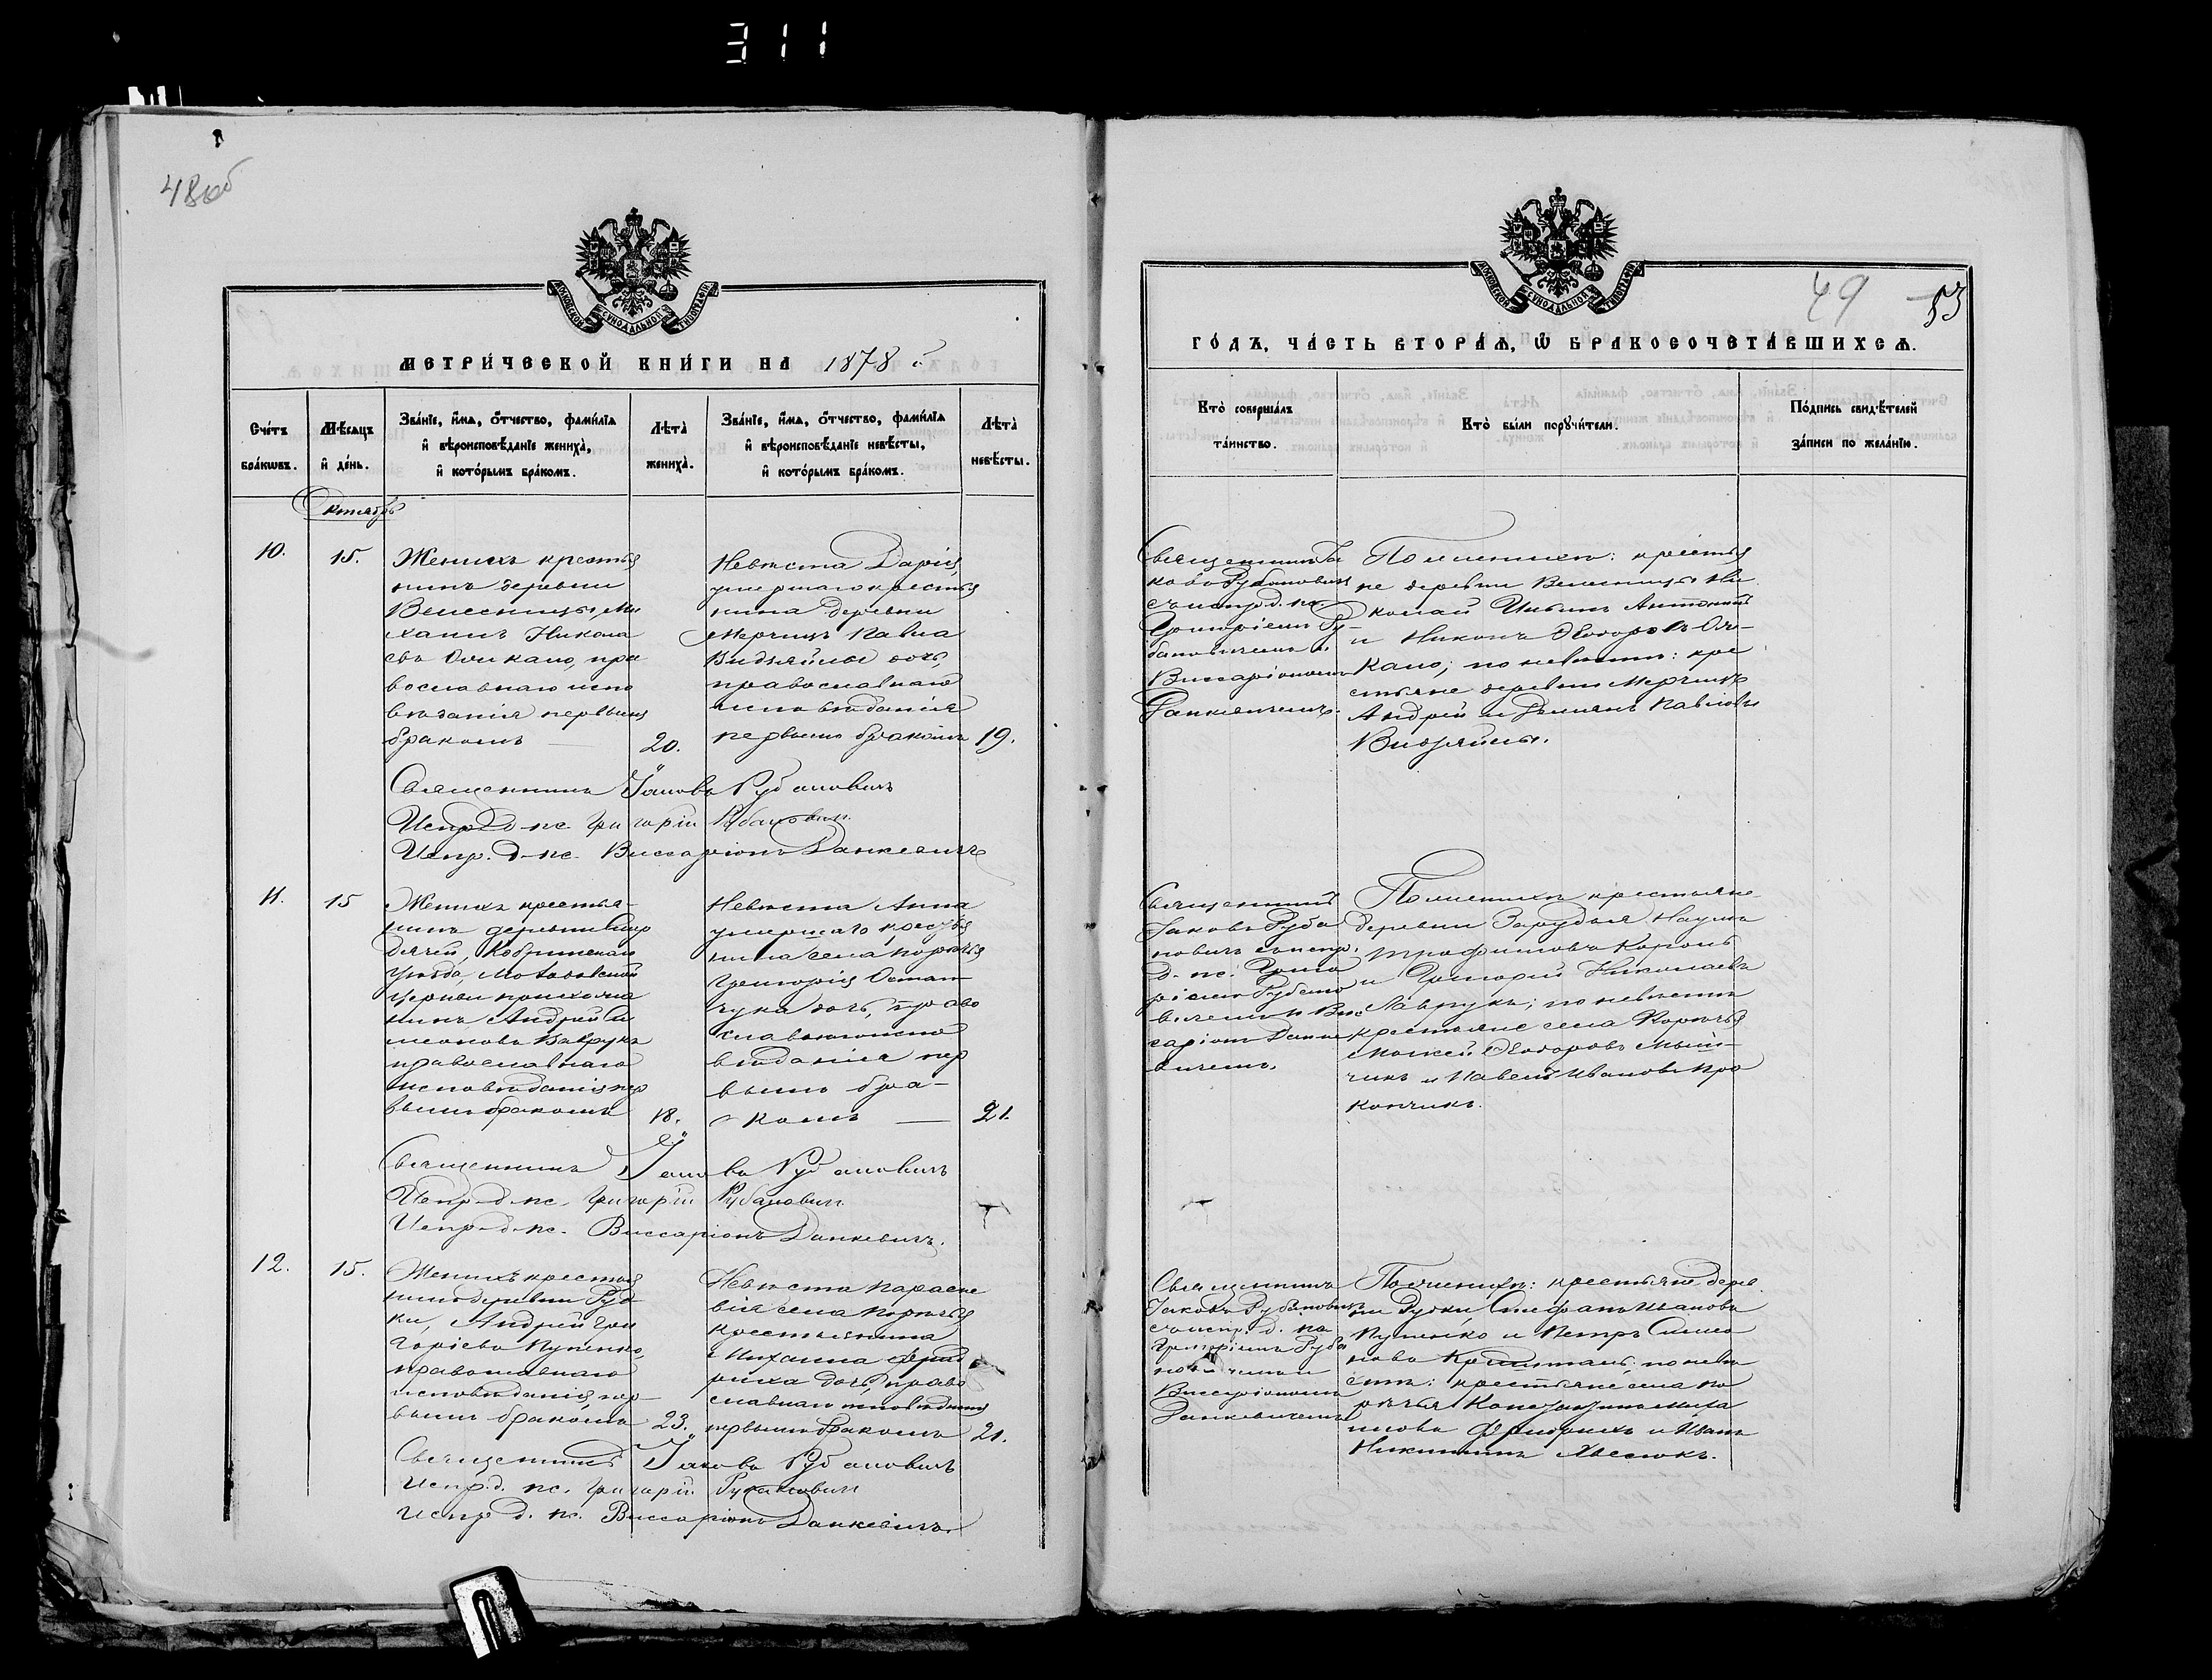 311
48об
МОСКОВСКОЙ СѴНОДАЛЬНОЙ ТИПОГРАФІИ
МЕТРИ́ЧЕСКОЙ КНИ́ГИ НА 1878 й
Сче́тъ бра́кѡвъ.
Мѣ́сяцъ и҆ де́нь.
Зва́нїе, и҆́мѧ, ѻ҆́тчество, фами́лїѧ и҆ вѣроисповѣ́данїе жениха̀, и҆ кото́рымъ бра́комъ.
Лѣ́та̀ жениха̀.
Зва́нїе, и҆́мѧ, ѻ҆́тчество, фами́лїѧ и҆ вѣроисповѣ́данїе невѣ́сты, и҆ кото́рымъ бра́комъ.
Лѣ́та̀ невѣ́сты.
Октябрь
10.
15.
Женихъ крестья
нинъ деревни
Вешницы, Ми
хаилъ Никола
евъ
православнаго испо
вѣданія первымъ
бракомъ
20.
Невѣста Дарія,
умершаго крестья
нина деревни
Мерчицъ Павла
Видзяйлы дочь,
православнаго
исповѣданія
первымъ бракомъ
19.
Священникъ Іаковъ Рубановичъ
Испр. д. пс. Григорій Рубановичъ
Испр. д. пс. Виссаріонъ Данкевичъ
11.
15
Женихъ крестья-
нинъ деревни
Кобринскаго
уѣзда,
церкви прихожа
нинъ Андрей Си
меоновъ Вакрукъ
православнаго
исповѣданія пер
вымъ бракомъ
18.
Невѣста Анна
умершаго крестья
нина села Порѣчья
Григорія Остап
чука дочь, право
славнаго испо
вѣданія пер
вымъ бра-
комъ
21.
Священникъ Іаковъ Рубановичъ
Испр. д. пс. Григорій Рубановичъ
Испр. д. пс. Виссаріонъ Данкевичъ.
12.
15.
Женихъ крестья
нинъ деревни Руд
ки, Андрей Гри
горіевъ Пупенко,
православнаго
исповѣданія, пер-
вымъ бракомъ
23.
Невѣста Параске
вія села Порѣчья
крестьянина
Михаила Фрид
риха дочь, право
славнаго исповѣданія
первымъ бракомъ
21.
Священникъ Іаковъ Рубановичъ
Испр. д. пс. Григорій Рубановичъ
Испр. д. пс. Виссаріонъ Данкевичъ.
49
53
МОСКОВСКОЙ СѴНОДАЛЬНОЙ ТИПОГРАФІИ
ГО́ДЪ, ЧА́СТЬ ВТОРА́Ѧ, Ѽ БРАКОСОЧЕТА́ВШИХСѦ.
Кто̀ соверша́лъ та́инство.
Кто̀ бы́ли порꙋчи́тели.
По́дпись свидѣ́телей за́писи по жела́нїю.
Священникъ Іа
ковъ Рубановичъ
съ испр. д. пс.
Григоріемъ Ру-
бановичемъ и
Виссаріономъ
Данкевичемъ.
По женихѣ: крестья
не деревни Вешницы Ни
колай Ильинъ
и Никонъ Ѳеодоровъ
по невѣстѣ: кре
стьяне деревни Мерчицъ
Андрей и Демьянъ Павловы
Видзяйлы.
Священникъ
Іаковъ Руба
новичъ съ испр.
д. пс. Григо
ріемъ Рубано
вичемъ и Вис
саріон. Данке
вичемъ.
По женихѣ крестьяне
деревни Зарудья Наумъ
Трофимовъ Король
и Григорій Николаевъ
Лаврукъ; по невѣстѣ
крестьяне села Порѣчья
Моисей Ѳеодоровъ
и Павелъ Ивановъ Про
копчикъ.
Священникъ
Іаковъ Рубановичъ
съ испр. д. пс.
Григоріемъ Руба
новичемъ и
Виссаріономъ
Данкевичемъ
По женихѣ: крестьяне дерев
ни Рудки, Стефанъ Ивановъ
Пупенко и Петръ Симео
новъ по невѣ
стѣ: крестьяне села По
рѣчья Константинъ Миха
иловъ Фридрихъ и Иванъ
Никитинъ